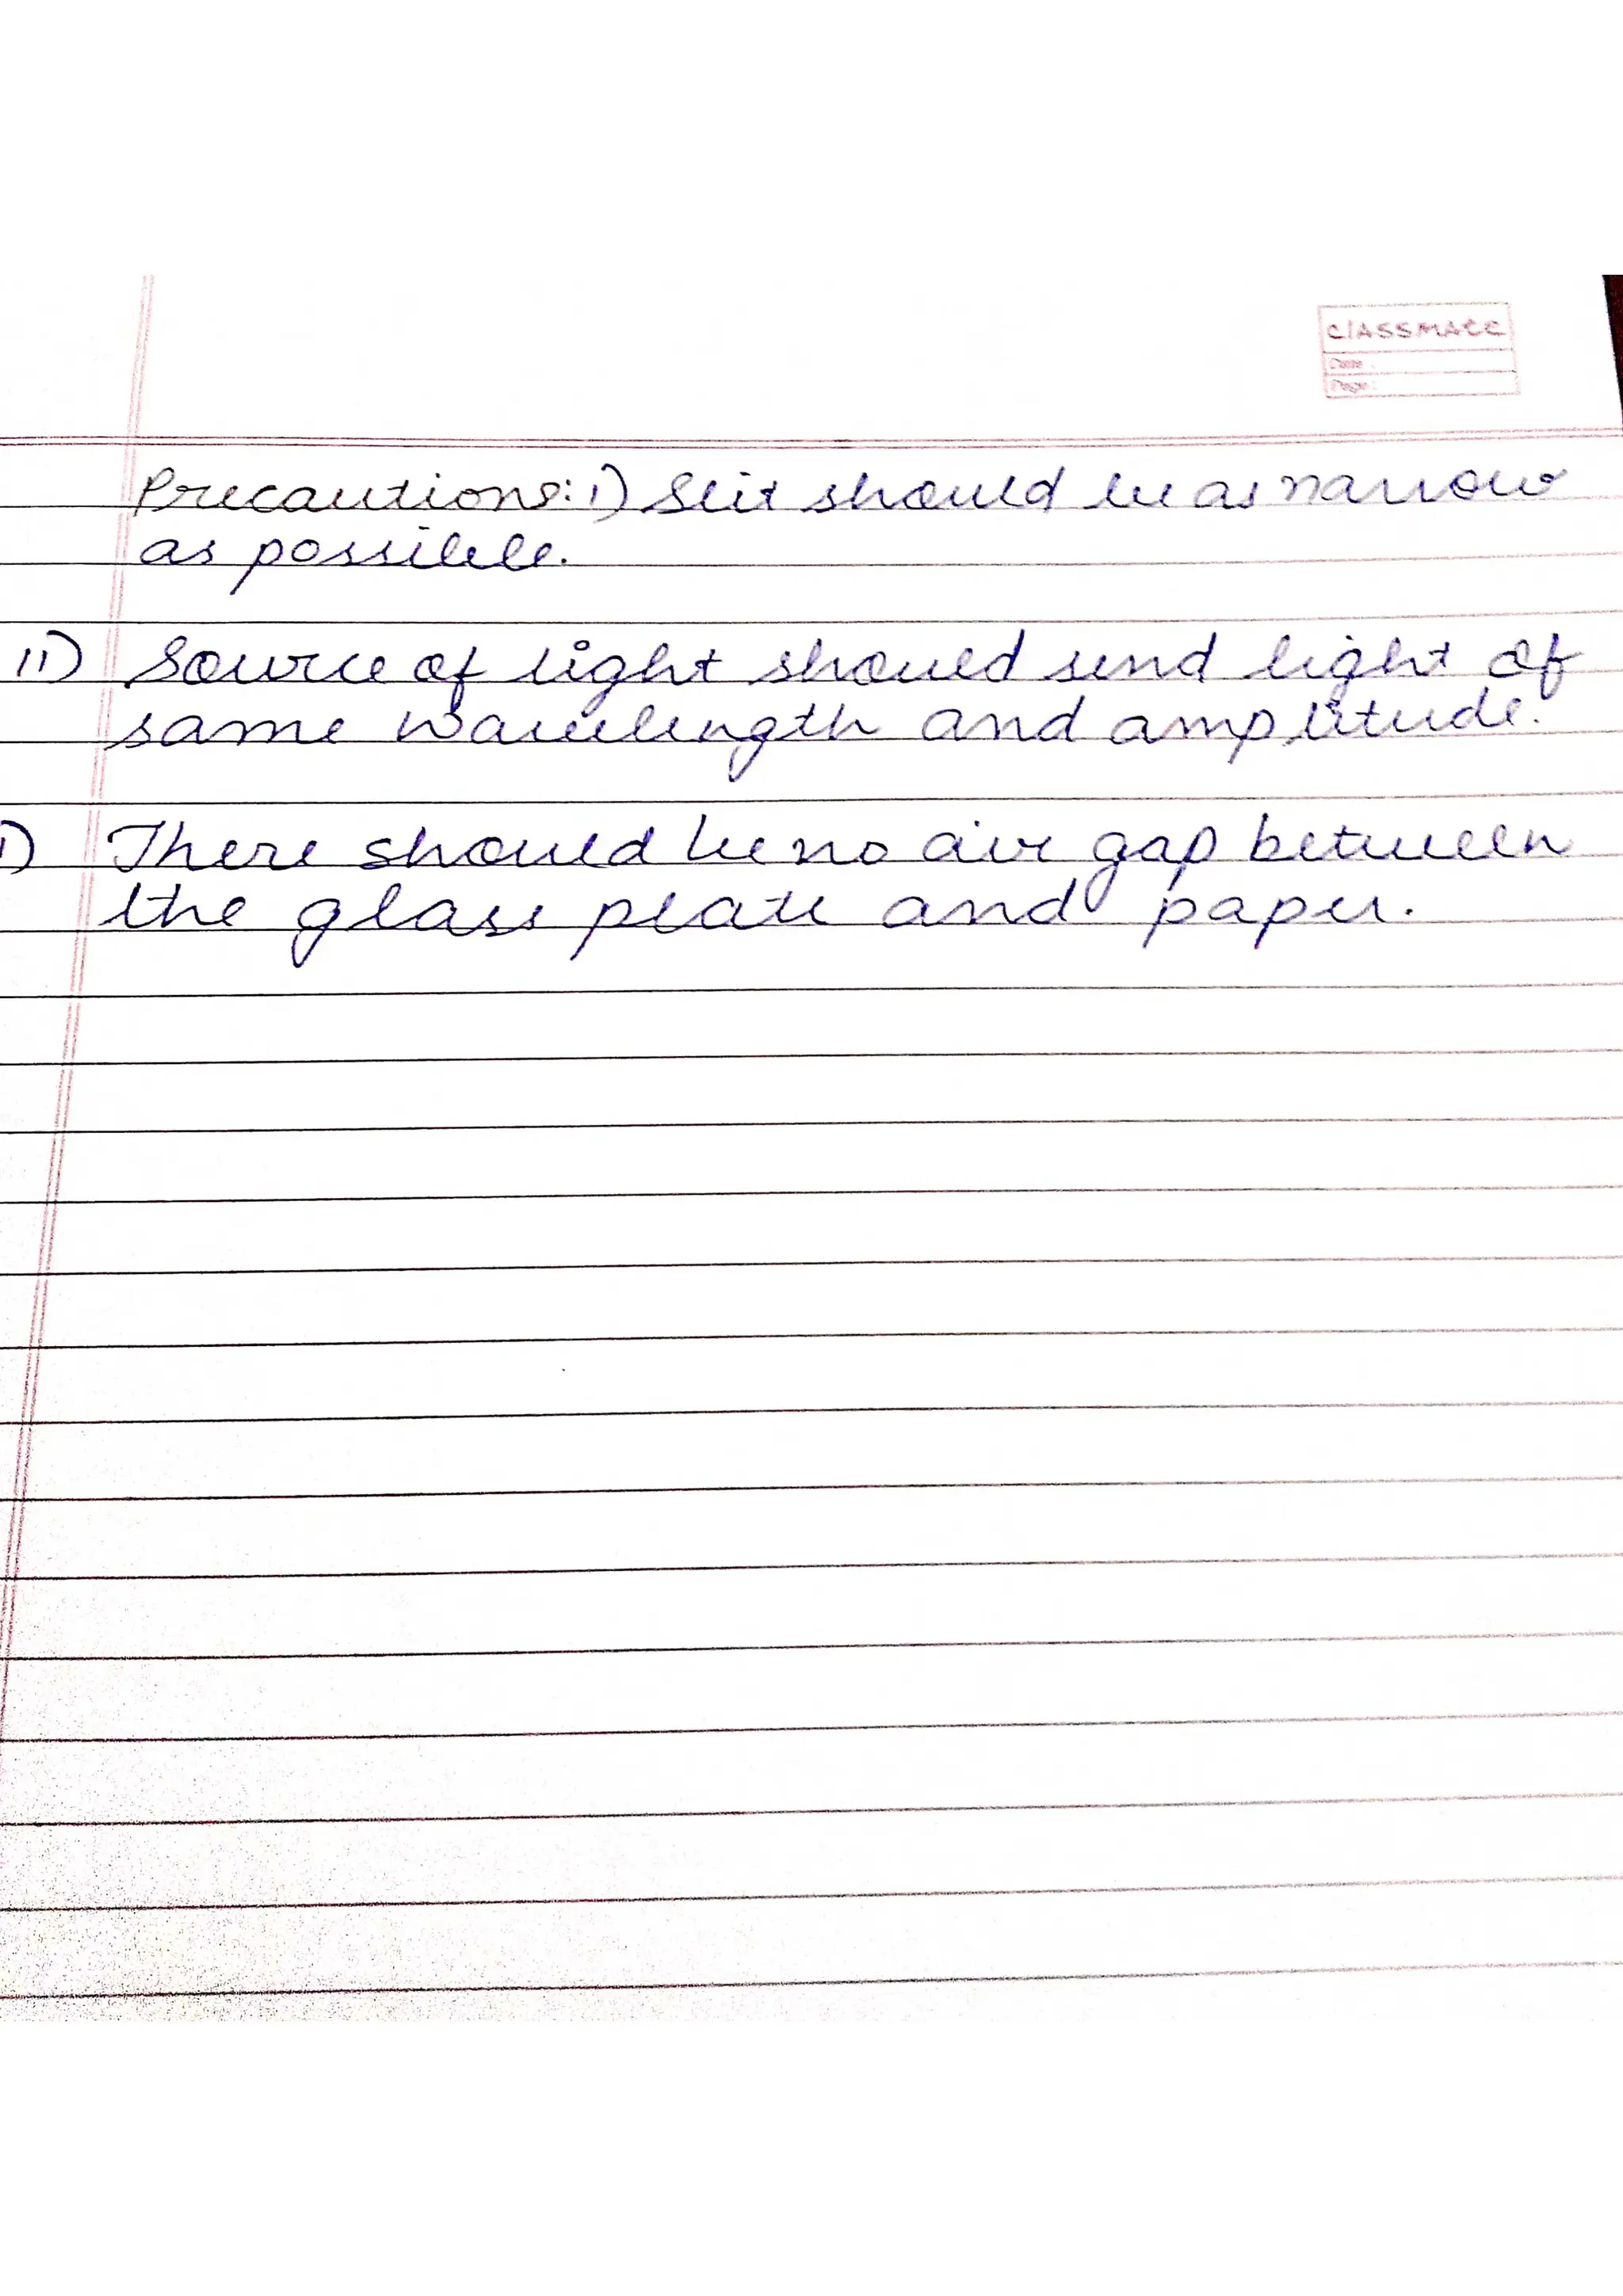 classmate
Date :
Page :
Precautions: i) Slit should be as narrow
as possible.
ii) Source of light should send light of
same wavelength and amplitude.
i) There should be no air gap between
the glass plate and paper.